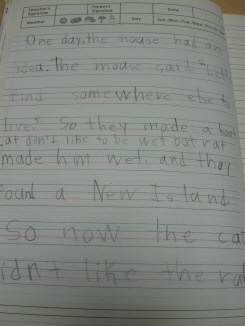 Teacher's Signature Parent's Signature Date
Weather Day
One day, the mouse had an
idea. The mouse said "let's
find somewhere else to
live." So they made a boat
cat don't like to be wet but rat
made him wet. and they
found a New Island
So now the cat
didn't like the rat